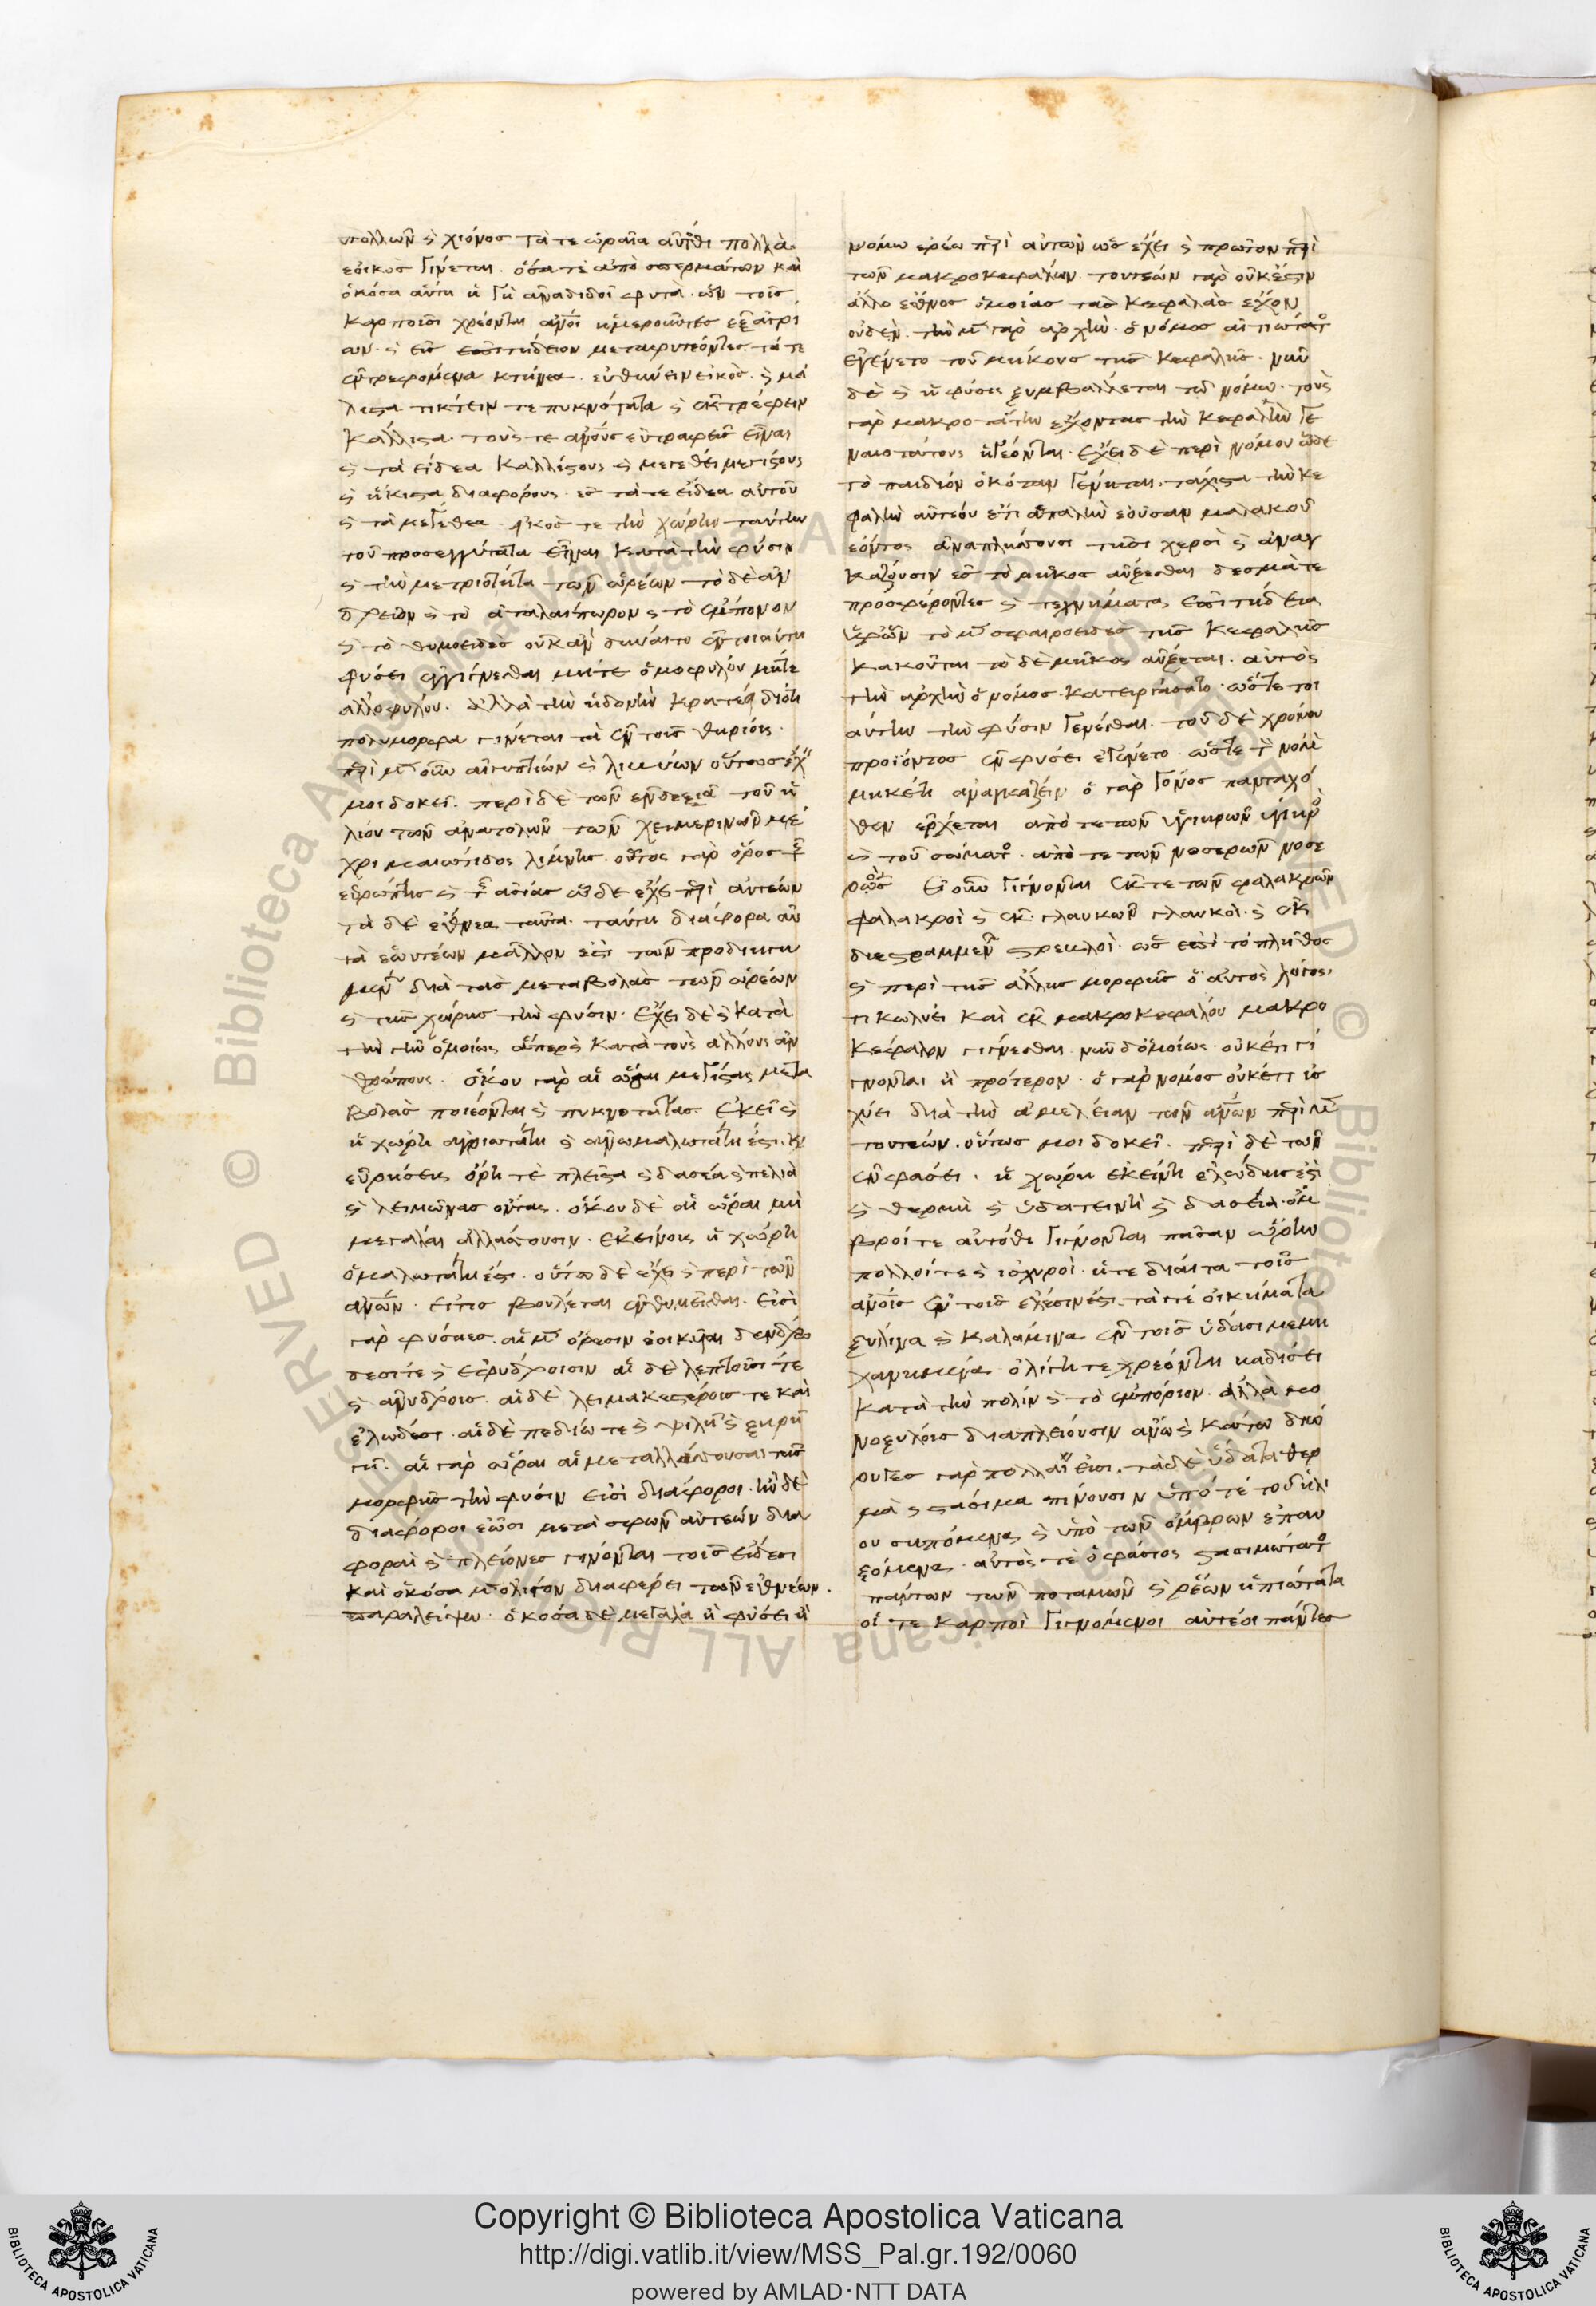 πολλῶν ϗ χιόνος τά τε ὡραῖα αὐτόθι πολλὰ
ἐοικὸς γίνεται. ὅσα τὲ ἀπὸ σπερμάτων καὶ
ὁκόσα αὐτὴ ἡ γῆ ἀναδιδοῖ φυτὰ. ὧν τοῖς
καρποῖσι χρέονται ἄνοι ἡμεροῦντες ἐξ ἀγρί
ων. ϗ εἰς ἐπιτήδειον μεταφυτεόντες. τά τε
ἐντρεφόμενα κτήνεα. εὐθηνέειν εἰκὸς. ϗ μά
λιστα τίκτειν τε πυκνότατα ϗ ἐκτρέφειν
κάλλιστα. τούς τε ἀνους εὐτραφεῖς εἶναι
ϗ τὰ εἴδεα καλλίστους ϗ μεγέθει μεγίστους
ϗ ἥκιστα διαφόρους ἐς τά τε εἴδεα αὐτοῦ
ϗ τὰ μεγέθεα. εἰκός τε τὴν χώρην ταύτην
τοῦ προσεγγύτατα εἶναι κατὰ τὴν φύσιν
ϗ τὴν μετριότητα τῶν ὡρέων τὸ δὲ ἀν
δρεῖον ϗ τὸ ἀταλαίπωρον ϗ τὸ ἔμπονον
ϗ τὸ θυμοειδὲς οὐκ ἂν δύναιτο ἐν τοιαύτη
φύσει ἐγγίνεσθαι μήτε ὁμοφύλου μήτε
ἀλλοφύλου. ἀλλὰ τὴν ἡδονὴν κρατέει διότι
πολύμορφα γίνεται τὰ ἐν τοῖς θηρίοις.
περὶ μὲν οὖν αἰγυπτίων ϗ λιβύων οὕτως ἔχειν
μοι δοκεῖ. περὶ δὲ τῶν ἐν δεξιᾶ τοῦ ἡ
λίου τῶν ἀνατολῶν τῶν χειμερινῶν μέ
χρι μαιώτιδος λίμνης. οὗτος γὰρ ὅρος τῆς
εὐρώπης ϗ τῆς ἀσίας ὧδε ἔχει περὶ αὐτέων
τὰ δὲ ἔθνεα ταῦτα. ταύτη διάφορα αὐ
τὰ ἑωυτέων μᾶλλόν ἐστι τῶν προδιηγη
μένων διὰ τὰς μεταβολὰς τῶν ὡρέων
ϗ τῆς χώρης τὴν φύσιν. ἔχει δὲ ϗ κατὰ
τὴν γῆν ὁμοίως ἅπερ ϗ κατὰ τοὺς ἄλλους ἀν
θρώπους. ὅκου γὰρ αἱ ὧραι μεγίστας μετα
βολὰς ποιέονται ϗ πυκνοτάτας. ἐκεῖ ϗ
ἡ χώρη ἀγριωτάτη ϗ ἀνωμαλωτάτη ἐστι. ϗ
εὑρήσεις ὄρη τὲ πλεῖστα ϗ δασέα ϗ πεδία
ϗ λειμῶνας ὄντας. ὅκου δὲ αἱ ὧραι μὴ
μεγάλαι ἀλλάσσουσιν. ἐκείνοις ἡ χώρη
ὁμαλωτάτη ἐστι. οὕτω δὲ ἔχει ϗ περὶ τῶν
ἀνων. εἴ τις βούλεται ἐνθυμεῖσθαι. εἰσὶ
γὰρ φύσιες αἱ μὲν ὄρεσιν ἐοικυῖαι δενδρώ
δεσί τε ϗ ἐφύδροισιν αἱ δὲ λεπτοῖσί τε
ϗ ἀνύδροις. αἱ δὲ λειμακεστέροις τε καὶ
ἑλώδεσι. αἱ δὲ πεδίω τε ϗ ψιλῆ ϗ ξηρῆ
γῆ. αἱ γὰρ ὧραι αἱ μεταλλάσσουσαι τῆς
μορφῆς τὴν φύσιν εἰσὶ διάφοροι. ἢν δὲ
διάφοροι ἔωσι μετὰ σφῶν αὐτέων δια
φοραὶ ϗ πλείονες γινόνται τοῖς εἴδεσι
καὶ ὁκόσα μὲν ὀλίγον διαφέρει τῶν ἐθνέων.
παραλείψω. ὁκόσα δὲ μεγάλα ἢ φύσει ἢ
νόμω ἐρέω περὶ αὐτῶν ὡς ἔχει ϗ πρῶτον περὶ
τῶν μακροκεφάλων. τουτέων γὰρ οὐκ ἔστιν
ἄλλο ἔθνος ὁμοίας τὰς κεφαλὰς ἔχον
οὐδὲν. τὴν μὲν γὰρ ἀρχὴν. ὁ νόμος αἰτιώτατος
ἐγένετο τοῦ μήκους τῆς κεφαλῆς. νῦν
δὲ ϗ ἡ φύσις ξυμβάλλεται τῶ νόμω. τοὺς
γὰρ μακροτάτην ἔχοντας τὴν κεφαλὴν γε
ναιοτάτους ἡγέονται. ἔχει δὲ περὶ νόμου ὧδε
τὸ παιδίον ὁκόταν γένηται. τάχιστα τὴν κε
φαλὴν αὐτέου ἔτι ἁπαλὴν ἐοῦσαν μαλακοῦ
ἐόντος ἀναπλήσσουσι τῆσι χερσὶ ϗ ἀναγ
κάζουσιν ἐς τὸ μῆκος αὔξεσθαι δεσμά τε
προσφέροντες ϗ τεχνήματα ἐπιτήδεια
ὑφ' ὧν τὸ μὲν σφαιροειδὲς τῆς κεφαλῆς
κακοῦται τὸ δὲ μῆκος αὔξεται. αὐτὸς
τὴν ἀρχὴν ὁ νόμος κατειργάσατο. ὥστε τοι
αύτην τὴν φύσιν γενέσθαι. τοῦ δὲ χρόνου
προϊόντος ἐν φύσει ἐγένετο. ὥστε τὸν νόμον
μηκέτι ἀναγκάζειν ὁ γὰρ γόνος πανταχό
θεν ἔρχεται ἀπό τε τῶν ὑγιηρῶν ὑγιηρὸς
ϗ τοῦ σώματος. ἀπό τε τῶν νοσερῶν νοσε
ρὸς εἰ οὖν γίγνονται ἔκ τε τῶν φαλακρῶν
φαλακροὶ ϗ ἐκ γλαυκῶν γλαυκοὶ. ϗ ἐκ
διεστραμμένων στρεβλοὶ. ὡς ἐπὶ τὸ πλῆθος
ϗ περὶ τῆς ἄλλης μορφῆς ὁ αὐτὸς λόγος.
τί κωλύει καὶ ἐκ μακροκεφάλου μακρο
κέφαλον γίγνεσθαι νῦν δ' ὁμοίως. οὐκέτι γί
γνονται ἢ πρότερον. ὁ γὰρ νόμος οὐκέτι ἰσ
χύει διὰ τὴν ἀμελείαν τῶν ἀνων περὶ μὲν
τουτεών. οὕτως μοι δοκεῖ. περὶ δὲ τῶν
ἐν φάσει. ἡ χώρη ἐκείνη ἑλώδης ἐστὶ
ϗ θερμὴ ϗ ὑδατεινὴ ϗ δασεῖα. ὄμ
βροί τε αὐτόθι γίγνονται πᾶσαν ὥρην
πολλοί τε ϗ ἰσχυροὶ. ἥτε δίαιτα τοῖς
ἀνοις ἐν τοῖς ἕλεσίν ἐστι. τά τε οἰκήματα
ξύλινα ϗ καλάμινα ἐν τοῖς ὕδασι μεμη
χανημένα ὀλίγη τε χρέονται βαδίσει
κατὰ τὴν πόλιν ϗ τὸ ἐμπόριον. ἀλλὰ μο
νοξύλοις διαπλέουσιν ἄνω ϗ κάτω διώ
ρυγες γὰρ πολλαί εἰσι. τὰ δὲ ὕδατα θερ
μὰ ϗ στάσιμα πίνουσιν ὑπό τε τοῦ ἡλί
ου σηπόμενα ϗ ὑπὸ τῶν ὄμβρων ἐπαυ
ξόμενα. αὐτός τε ὁ φάσις στασιμώτατος
πάντων τῶν ποταμῶν ϗ ῥέων ἠπιώτατα
οἵ τε καρποὶ γιγνόμενοι αὐτέοι πάντες
Copyright © Biblioteca Apostolica Vaticana
http://digi.vatlib.it/view/MSS_Pal.gr.192/0060
powered by AMLAD·NTT DATA
BIBLIOTECA APOSTOLICA VATICANA
BIBLIOTECA APOSTOLICA VATICANA